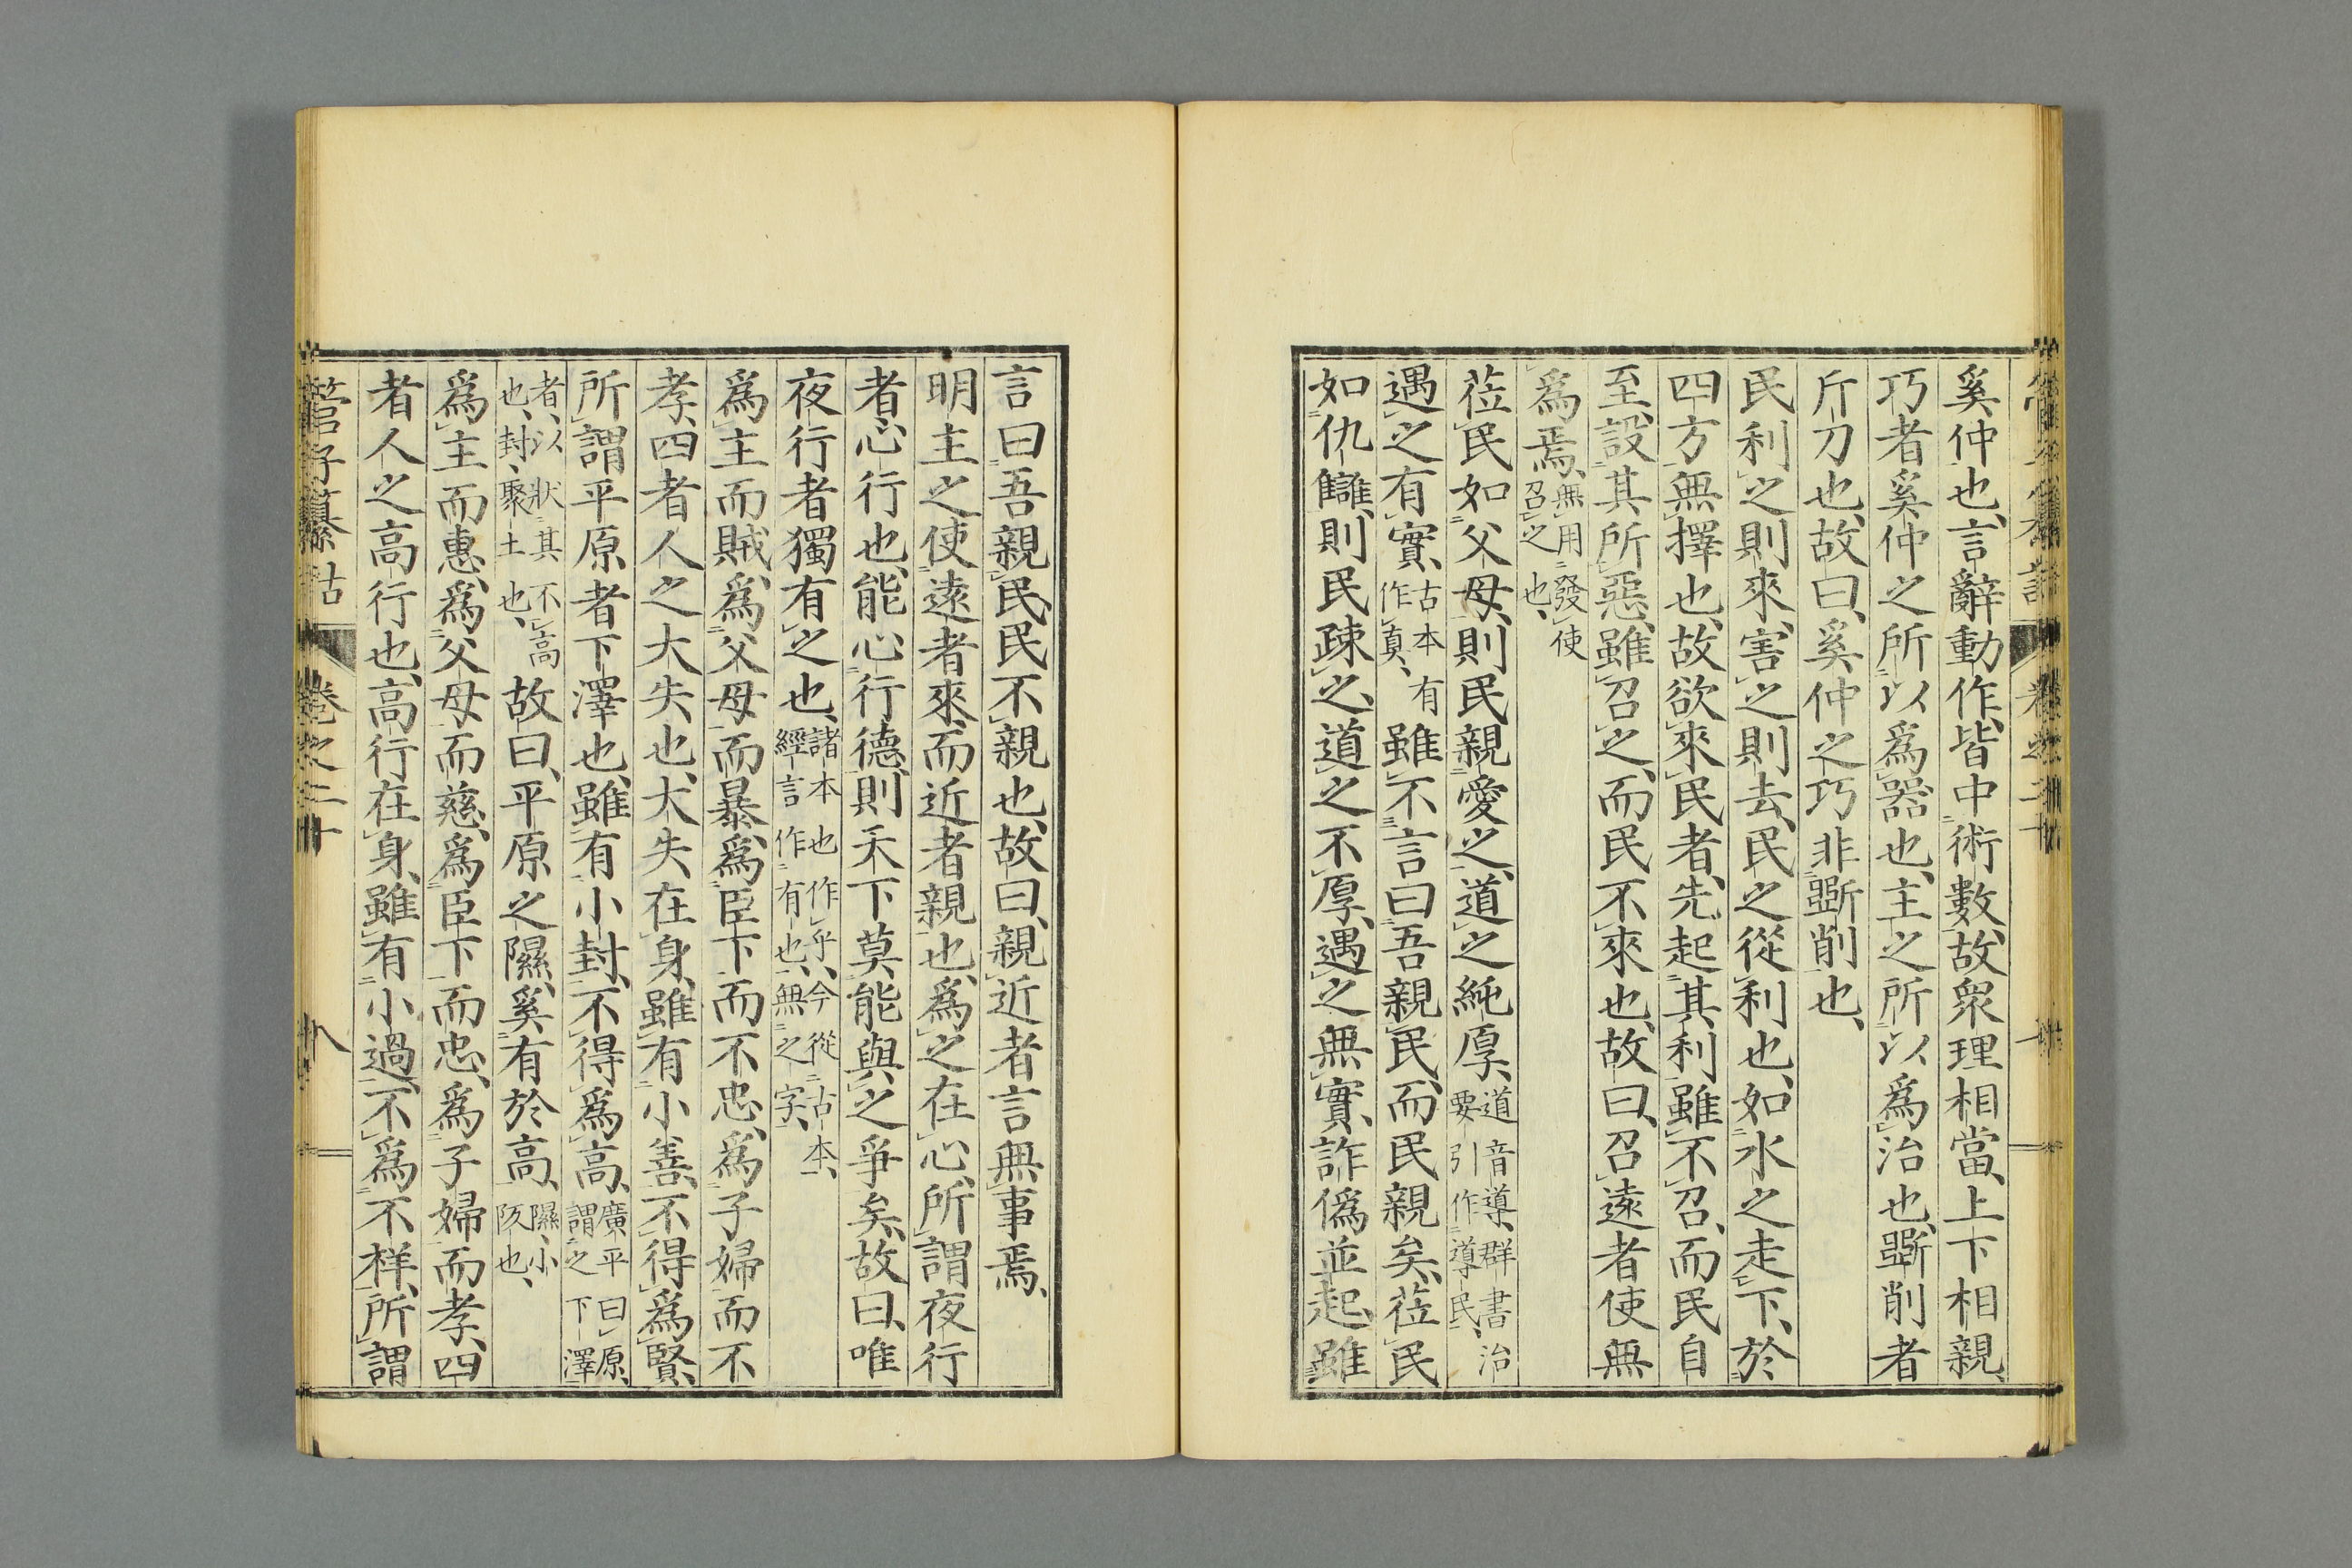 奚仲也、言辭動作、皆中術數、故衆理相當、上下相親、
巧者奚仲之所以爲器也、主之所以爲治也、斲削者
斤刀也、故曰、奚仲之巧非斲削也、
民利之則來、害之則去、民之從利也、如水之走下、於
四方無擇也、故欲來民者、先起其利、雖不召、而民自
至、設其所惡、雖召之、而民不來也、故曰、召遠者使無
爲焉、無用發使召之也、
莅民如父母、則民親愛之、道之純厚、道音導、群書治要引作導民、
遇之有實、古本有作眞、雖不言曰吾親民、而民親矣、莅民
如仇讎、則民疎之、道之不厚、遇之無實、詐僞並起、雖
言曰吾親民、民不親也、故曰、親近者言無事焉、
明主之使遠者來、而近者親也、爲之在心、所謂夜行
者、心行也、能心行德、則天下莫能與之爭矣、故曰、唯
夜行者獨有之也、諸本也作乎、今從古本、經言作有也、無之字、
爲主而賊、爲父母而暴、爲臣下而不忠、爲子婦而不
孝、四者人之大失也、大失在身、雖有小善、不得爲賢、
所謂平原者下澤也、雖有小封、不得爲高、廣平曰原、謂之下澤
者、以狀其不高也、封、聚土也、故曰、平原之隰、奚有於高、隰、小阪也、
爲主而惠、爲父母而慈、爲臣下而忠、爲子婦而孝、四
者人之高行也、高行在身、雖有小過、不爲不祥、所謂
管子纂詁 卷之二十 八